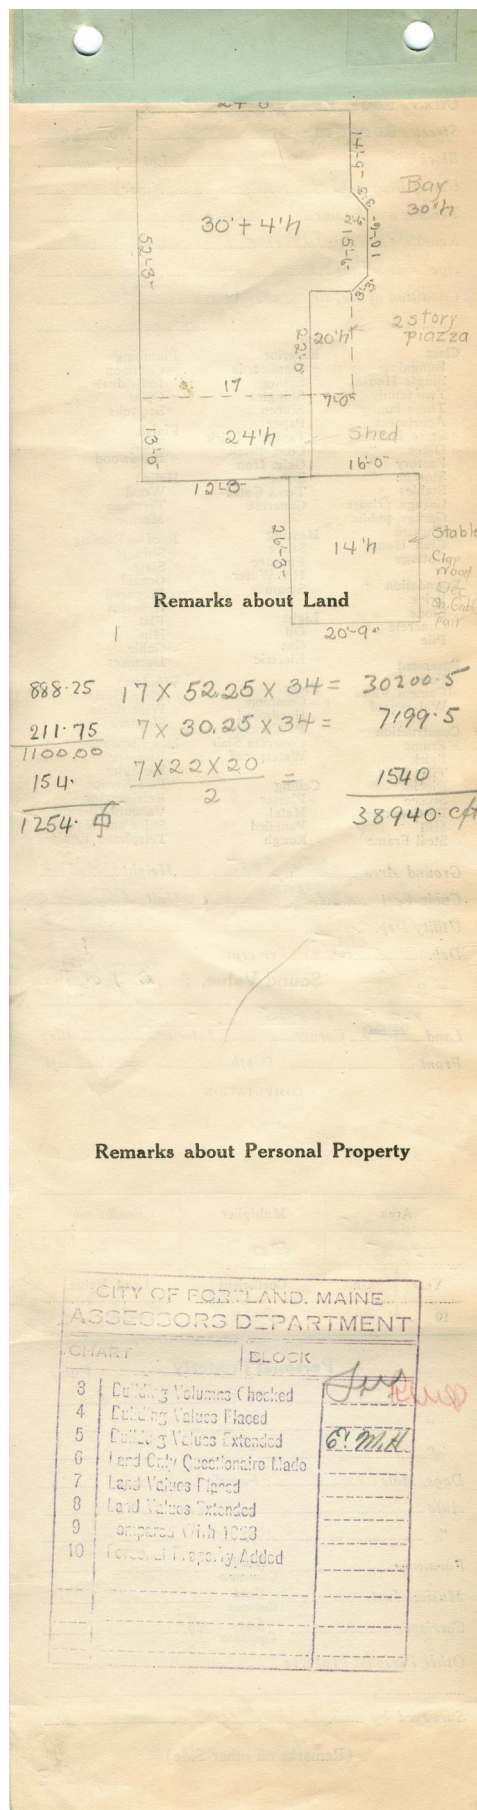 24'-0"
14'-9"
3'-3"
Bay
30'h
30'+4'h
52'-3"
15'-6"
10'-6"
2 story
piazza
20'h
22'-0"
17
7'-0"
13'-0"
24'h
Shed
16'-0"
12'-3"
26'-3"
14'h
Stable
Clap
Wood
Elec
Fair
Remarks about Land
20'-9"
1
888.25 17 X 52.25 X 34 = 30200.5
211.75 7 X 30.25 X 34 = 7199.5
1100.00
154. 7 X 22 X 20 = 1540
2
1254. 38940. cft
Remarks about Personal Property
CITY OF PORTLAND, MAINE
ASSESSORS DEPARTMENT
CHART BLOCK
3 Building Volumns Checked
4 Building Values Placed
5 Building Values Extended
6 Land Only Questionaire Made
7 Land Values Placed
8 Land Values Extended
9 ompared With 1923
10 Personal Property Added